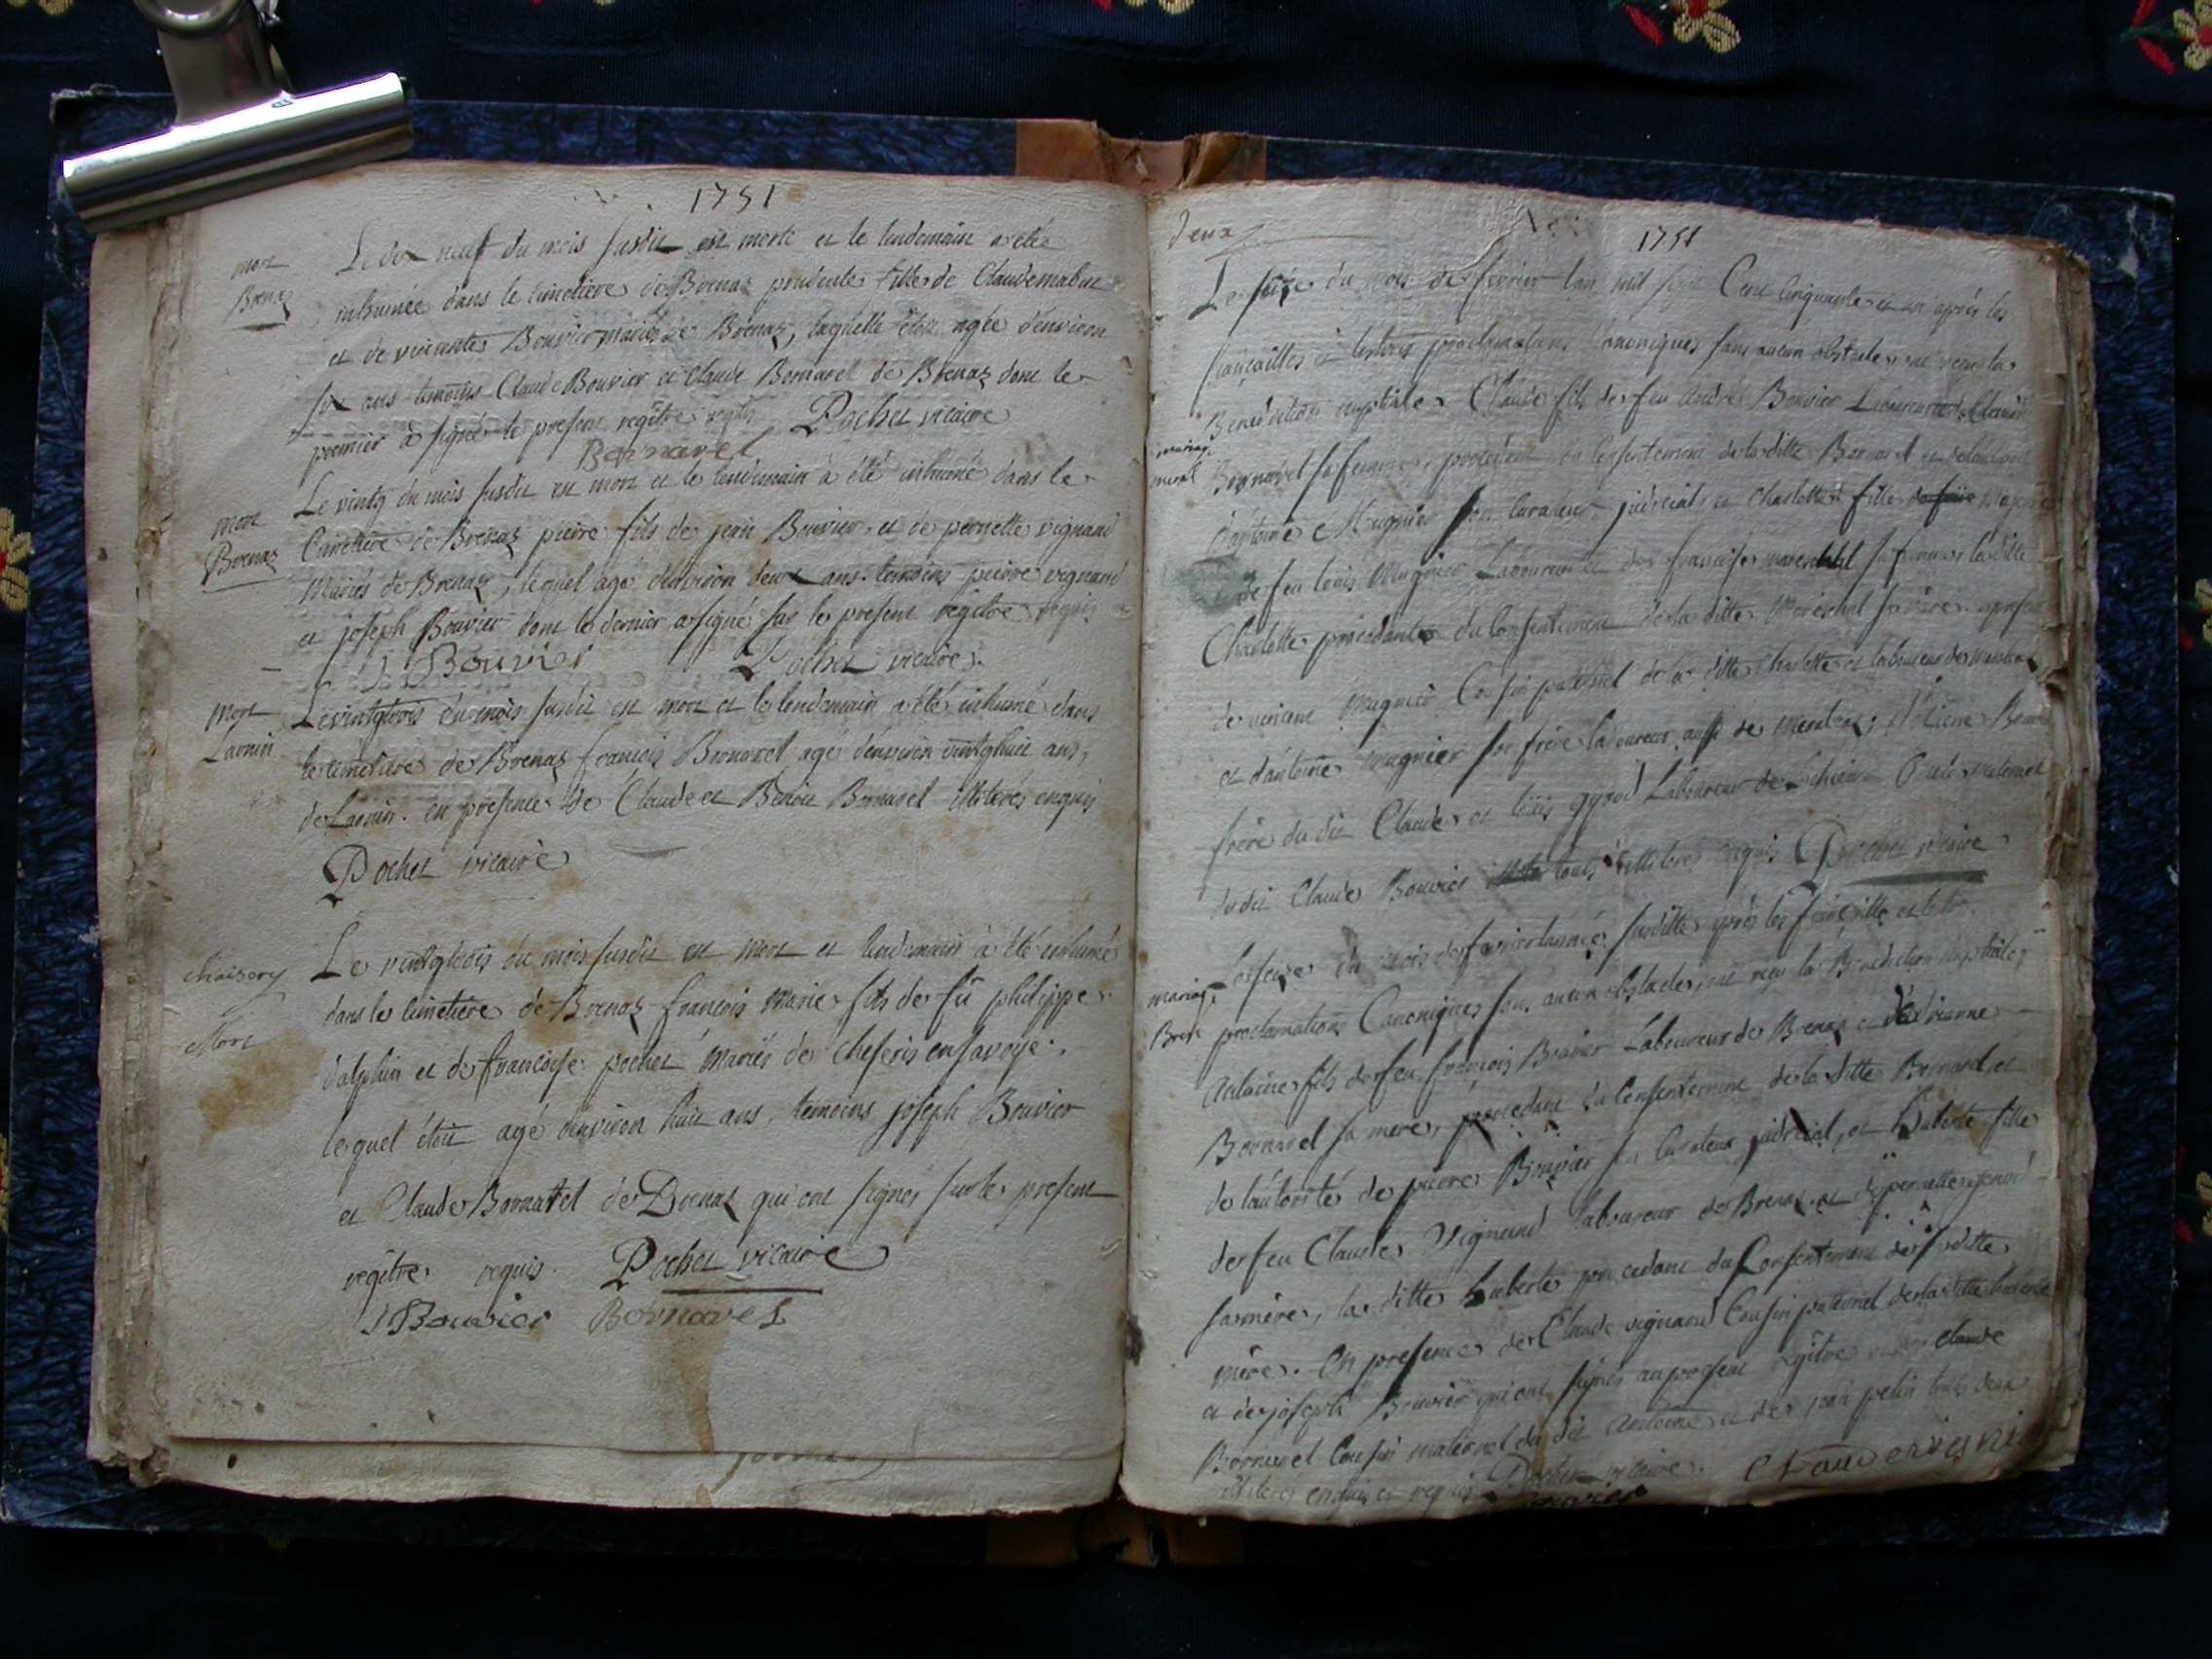 1751
mort
Brenaz
Le dix neuf du mois susdit est morte et le lendemain a été
inhumée dans le cimetiere de Brenaz prudente fille de Claude
et de vincente Bouvier mariés de Brenaz, laquelle étoit agée d'environ
six ans temoins Claude Bouvier et Claude Bornarel de Brenaz dont le
premier a signé le present regitre requis Pochet vicaire
Bornarel
mort
Brenaz
Le vingt du mois susdit est mort et le lendemain à été inhumé dans le
Cimetiere de Brenaz pierre fils de jean Bouvier et de pernette vignand
Mariés de Brenaz, lequel agé d'environ deux ans. temoins pierre vignand
et joseph Bouvier dont le dernier a signé sur le present régitre requis
J Bouvier Pochet vicaire.
mort
Lavnin
Le vingttrois du mois susdit est mort et le lendemain a été inhumé dans
le cimetiere de Brenaz francois Bornarel agé d'environ vingthuit ans,
de en presence de Claude et Benoit Bornarel illiterés enquis
Pochet vicaire
chaisery
Mort
Le vingttrois du mois susdit est mort et lendemain à été inhumé
dans le cimetiere de Brenaz francois Marie fils de fû philippe
dalphin et de francoise pochet mariés de cheseris en savoye.
lequel étoit agé d'environ huit ans, temoins joseph Bouvier
et Claude Bornarel de Brenaz qui ont signés sur le present
regitre requis. Pochet vicaire
J Bouvier Bornarel
deux
1751
Le seize du mois de fevrier lan mil sept Cent Cinquante et un après les
fiançailles et les trois proclamations Canoniques sans aucun obstacle ont recu la
Benediction nuptiale Claude fils de feu André Bouvier Laboureur de
mariage
Bornarel sa femme, procedant du consentement de la ditte Bornarel et de l'autorité
d'antoine Mugnier son curateur judicial, et Charlotte fille
de feu louis Mugnier Laboureur et de francoise mareschal sa femme la ditte
Charlotte procedante du consentement de la ditte Mareschal sa mère
de vincent Mugnier Cousin paternel de la ditte Charlotte et laboureur de
et d'antoine Mugnier son frere laboureur aussi de
frère du dit Claude et loüis gyond Laboureur de Oncle maternel
du dit Claude Bouvier tous illiterés enquis Pochet vicaire
mariage
Bren
Le seize du mois de fevrier lannée susditte après les fiançailles et les trois
proclamations Canoniques sans aucun obstacle, ont reçu la Benediction nuptiale
Antoine fils de feu francois Bouvier Laboureur de Brenaz et d'étienne
Bornarel sa mere, procedant du consentement de la ditte Bornarel et
de l'autorité de pierre Bouvier son Curateur judicial, et huberte fille
de feu Claude Vignand laboureur de Brenaz et de pernette gyond
sa mère, la ditte huberte procedant du Consentement de sa ditte
mère. En presence de Claude vignand Cousin paternel de la ditte huberte
et de joseph Bouvier qui ont signés au present régitre claude
Bornarel Cousin maternel du dit antoine et de jean pelin touts deux
illiterés enquis et requis Pochet vicaire. Claude vignand
Bouvier